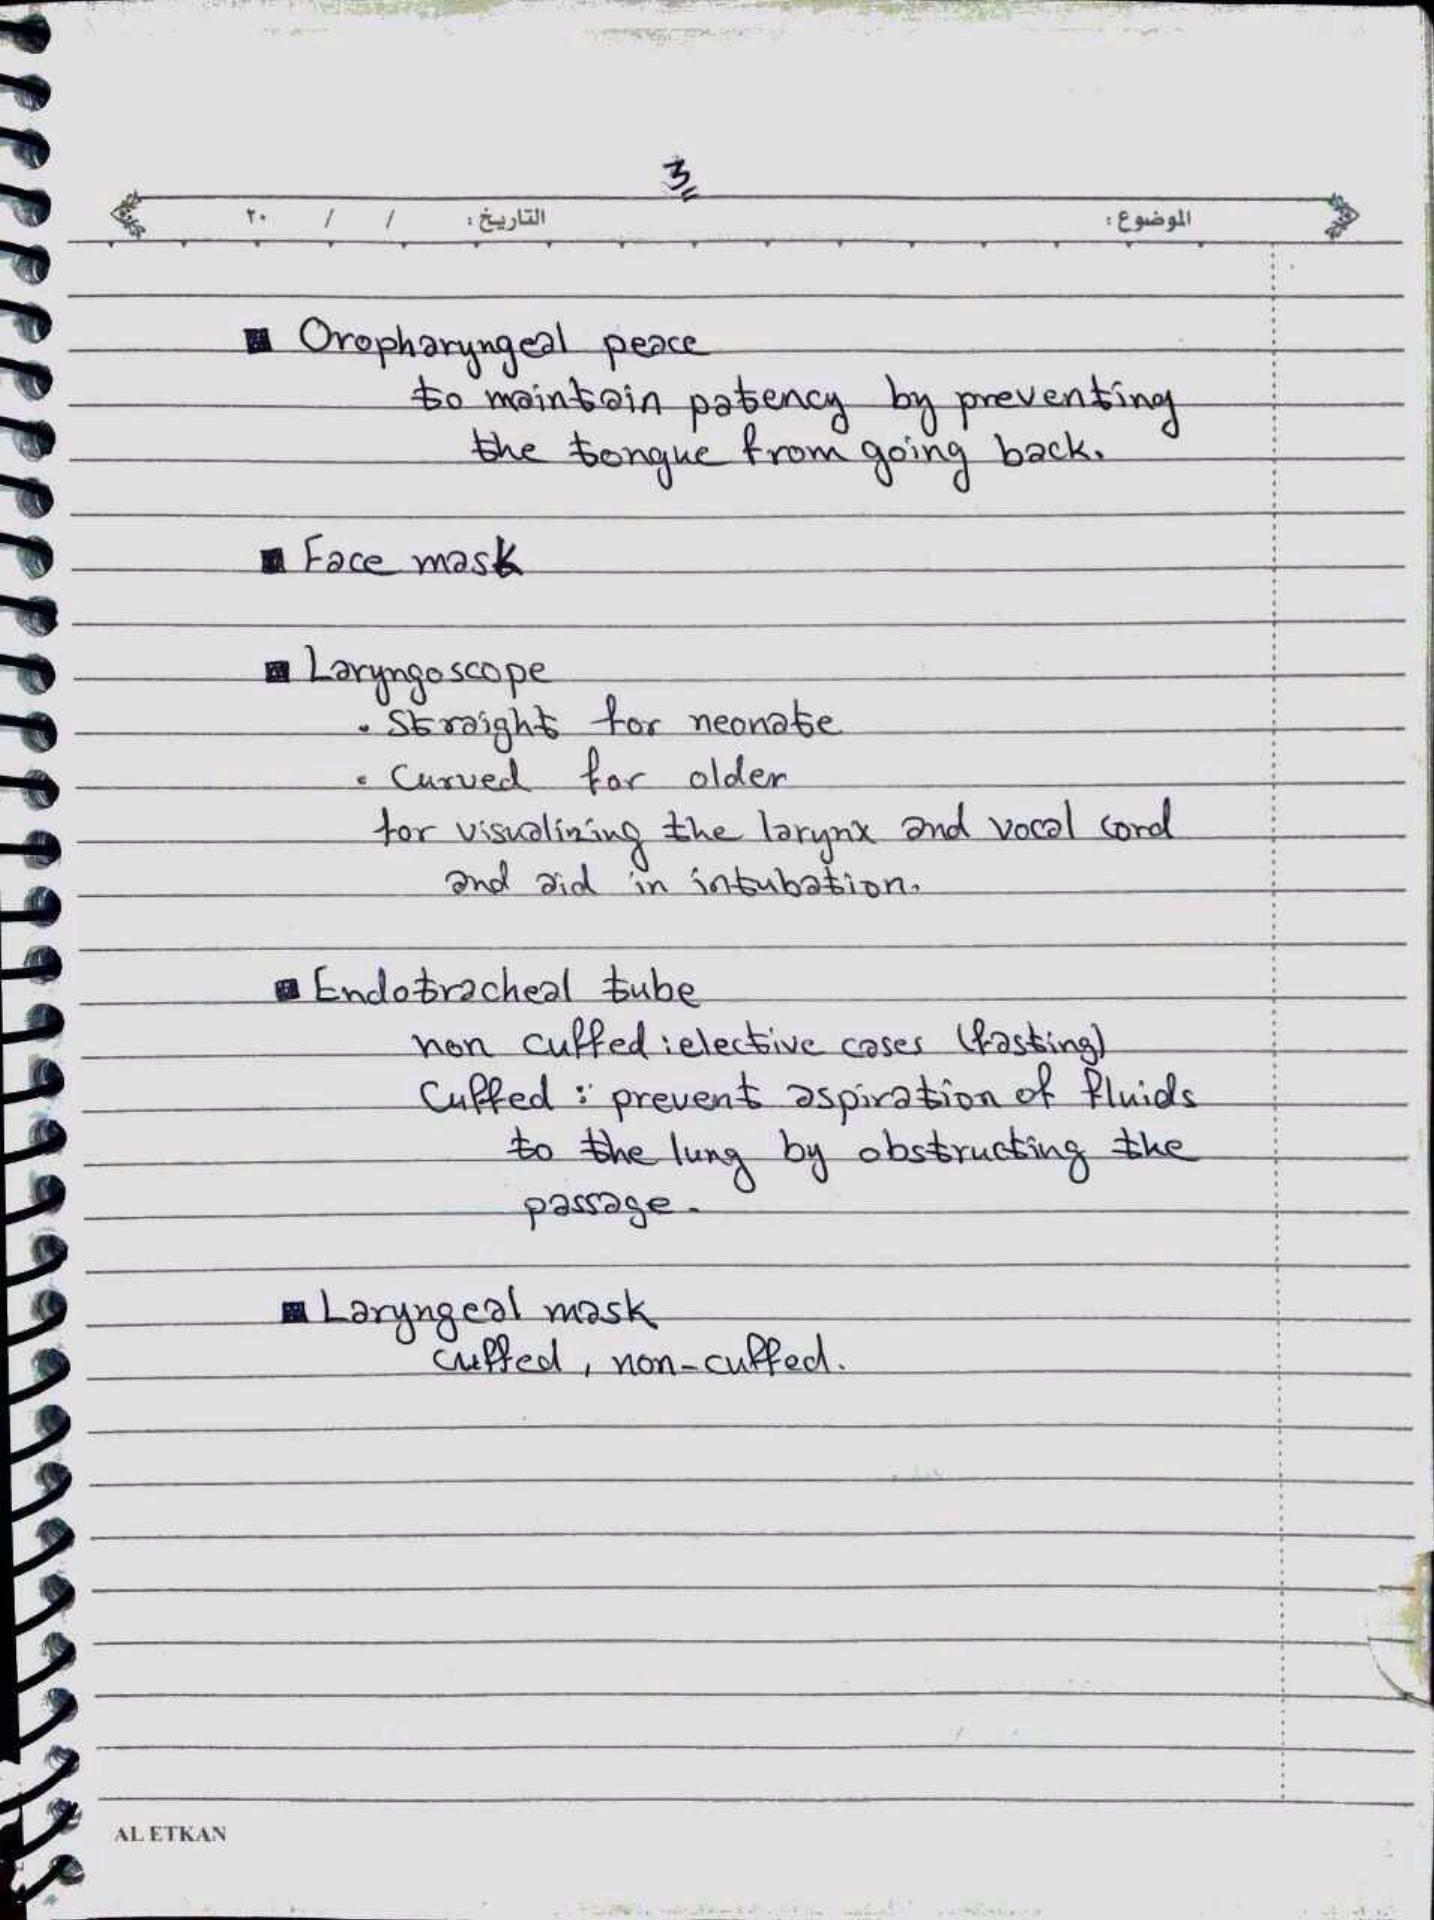 3
الموضوع: التاريخ: / / ٢٠
■ Oropharyngeal peace
to maintain patency by preventing
the tongue from going back.
■ Face mask
■ Laryngoscope
• Straight for neonate
• Curved for older
for visualizing the larynx and vocal cord
and aid in intubation.
■ Endotracheal tube
non cuffed : elective cases (fasting)
Cuffed : prevent aspiration of fluids
to the lung by obstructing the
passage.
■ Laryngeal mask
cuffed, non-cuffed.
AL ETKAN